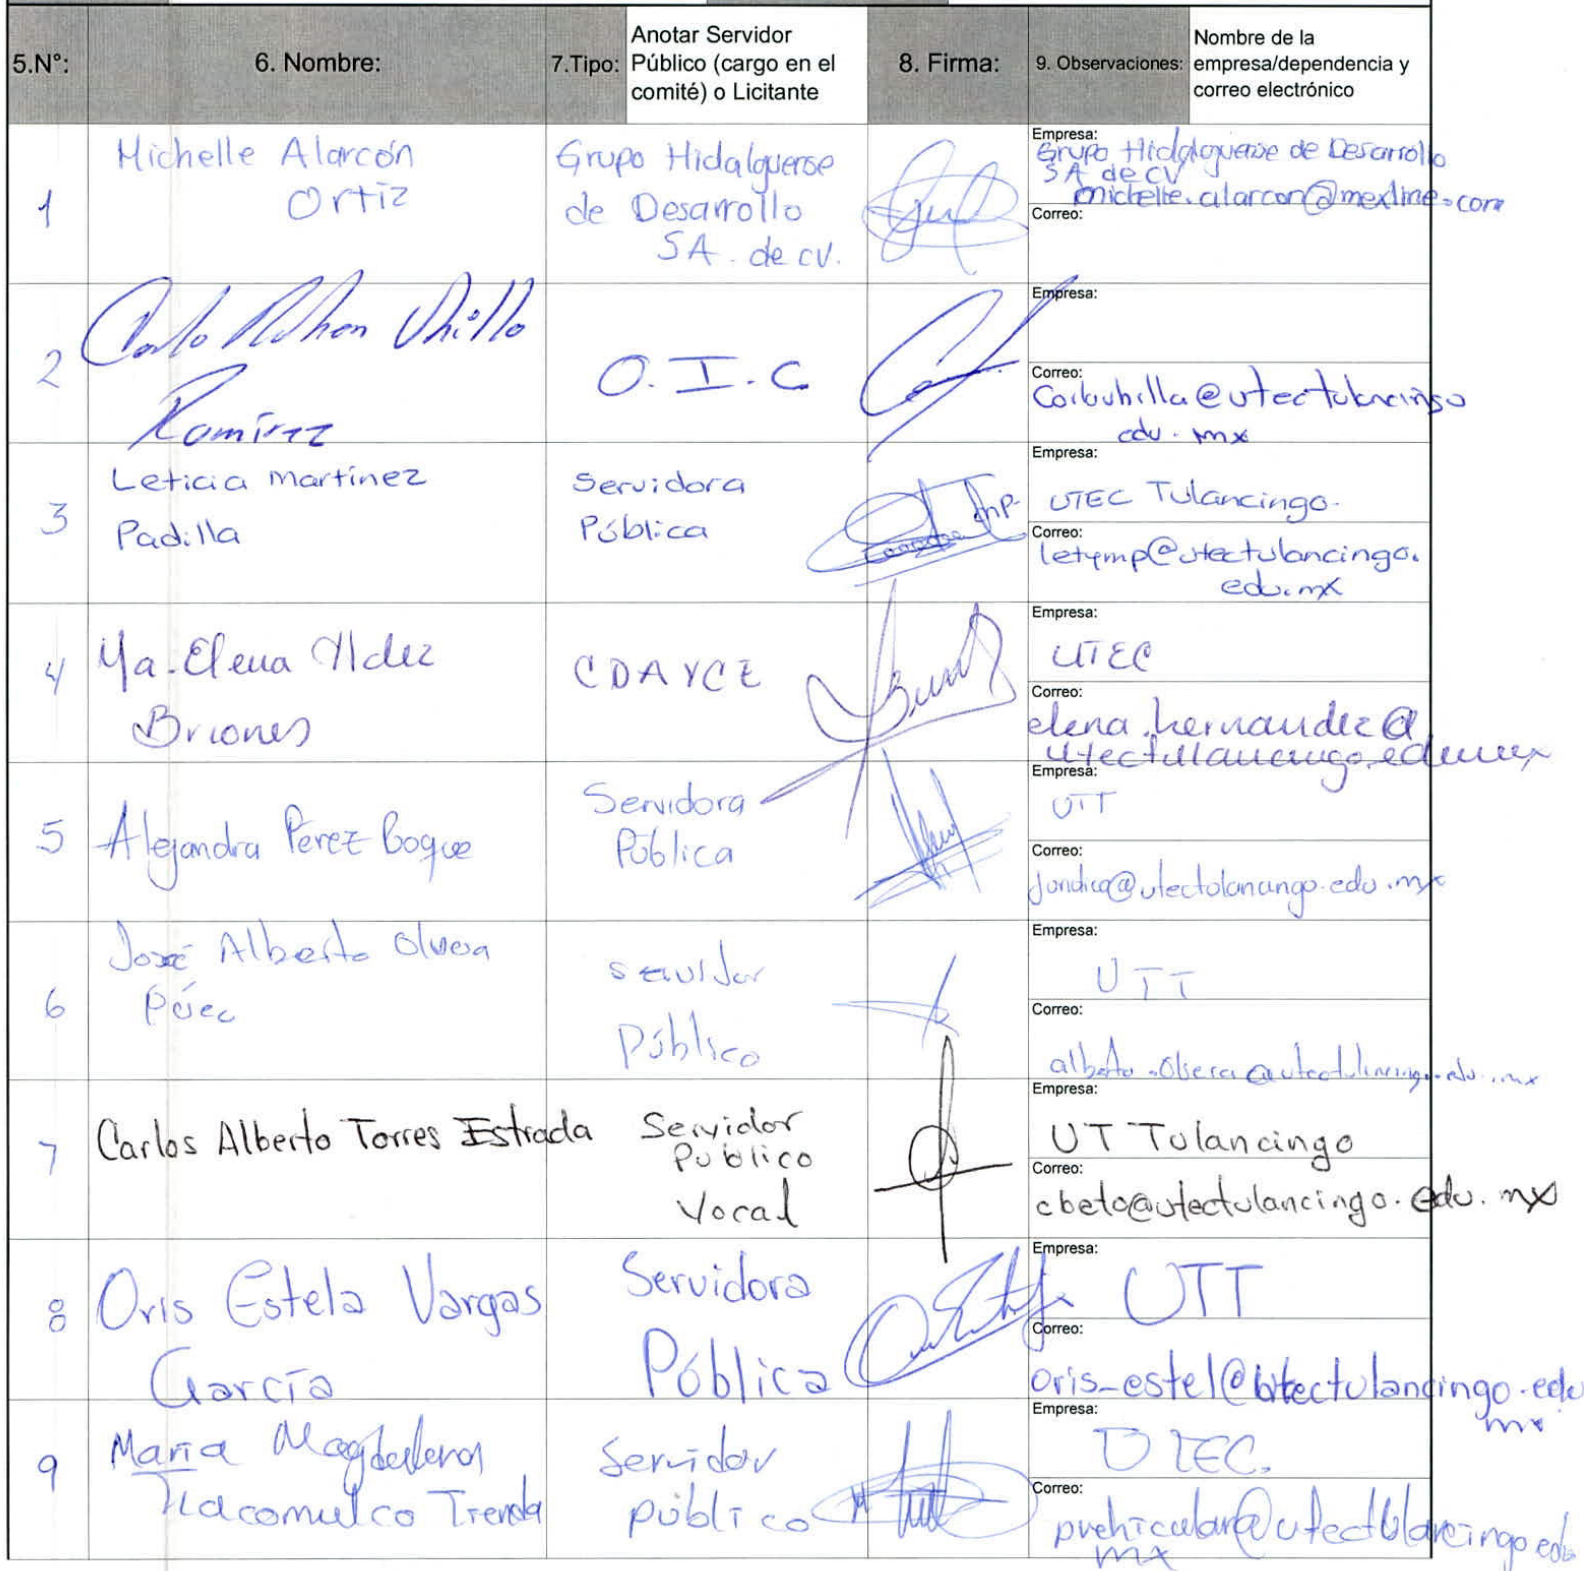 5.N°:
6. Nombre:
7.Tipo:
Anotar Servidor
Público (cargo en el
comité) o Licitante
8. Firma:
9. Observaciones:
Nombre de la
empresa/dependencia y
correo electrónico
1
Michelle Alarcón
Ortiz
Grupo Hidalguense
de Desarrollo
SA. de cv.
Empresa:
Grupo Hidalguense de Desarrollo
SA de CV
michelle.alarcon@mexline.com
Correo:
2
Ramírez
O.I.C
Empresa:
Correo:
edu.mx
3
Leticia Martínez
Padilla
Servidora
Pública
Empresa:
UTEC Tulancingo.
Correo:
letymp@utectulancingo.
edu.mx
4
Ma. Elena Hdez
Briones
CDAYCE
Empresa:
UTEC
Correo:
elena.hernandez@
utectulancingo.edu.mx
5
Alejandra Pérez Bogue
Servidora
Pública
Empresa:
UTT
Correo:
juridico@utectulancingo.edu.mx
6
José Alberto Olvera
Pérez
servidor
Público
Empresa:
UTT
Correo:
alberto.olvera@utectulancingo.edu.mx
7
Carlos Alberto Torres Estrada
Servidor
Publico
Vocal
Empresa:
UT Tulancingo
Correo:
cbeto@utectulancingo.edu.mx
8
Oris Estela Vargas
García
Servidora
Pública
Empresa:
UTT
Correo:
oris_estel@utectulancingo.edu
mx
9
María Magdalena
Tlacomulco Trenda
Servidor
público
Empresa:
UTEC.
Correo:
pvehicular@utectulancingo.edu
mx